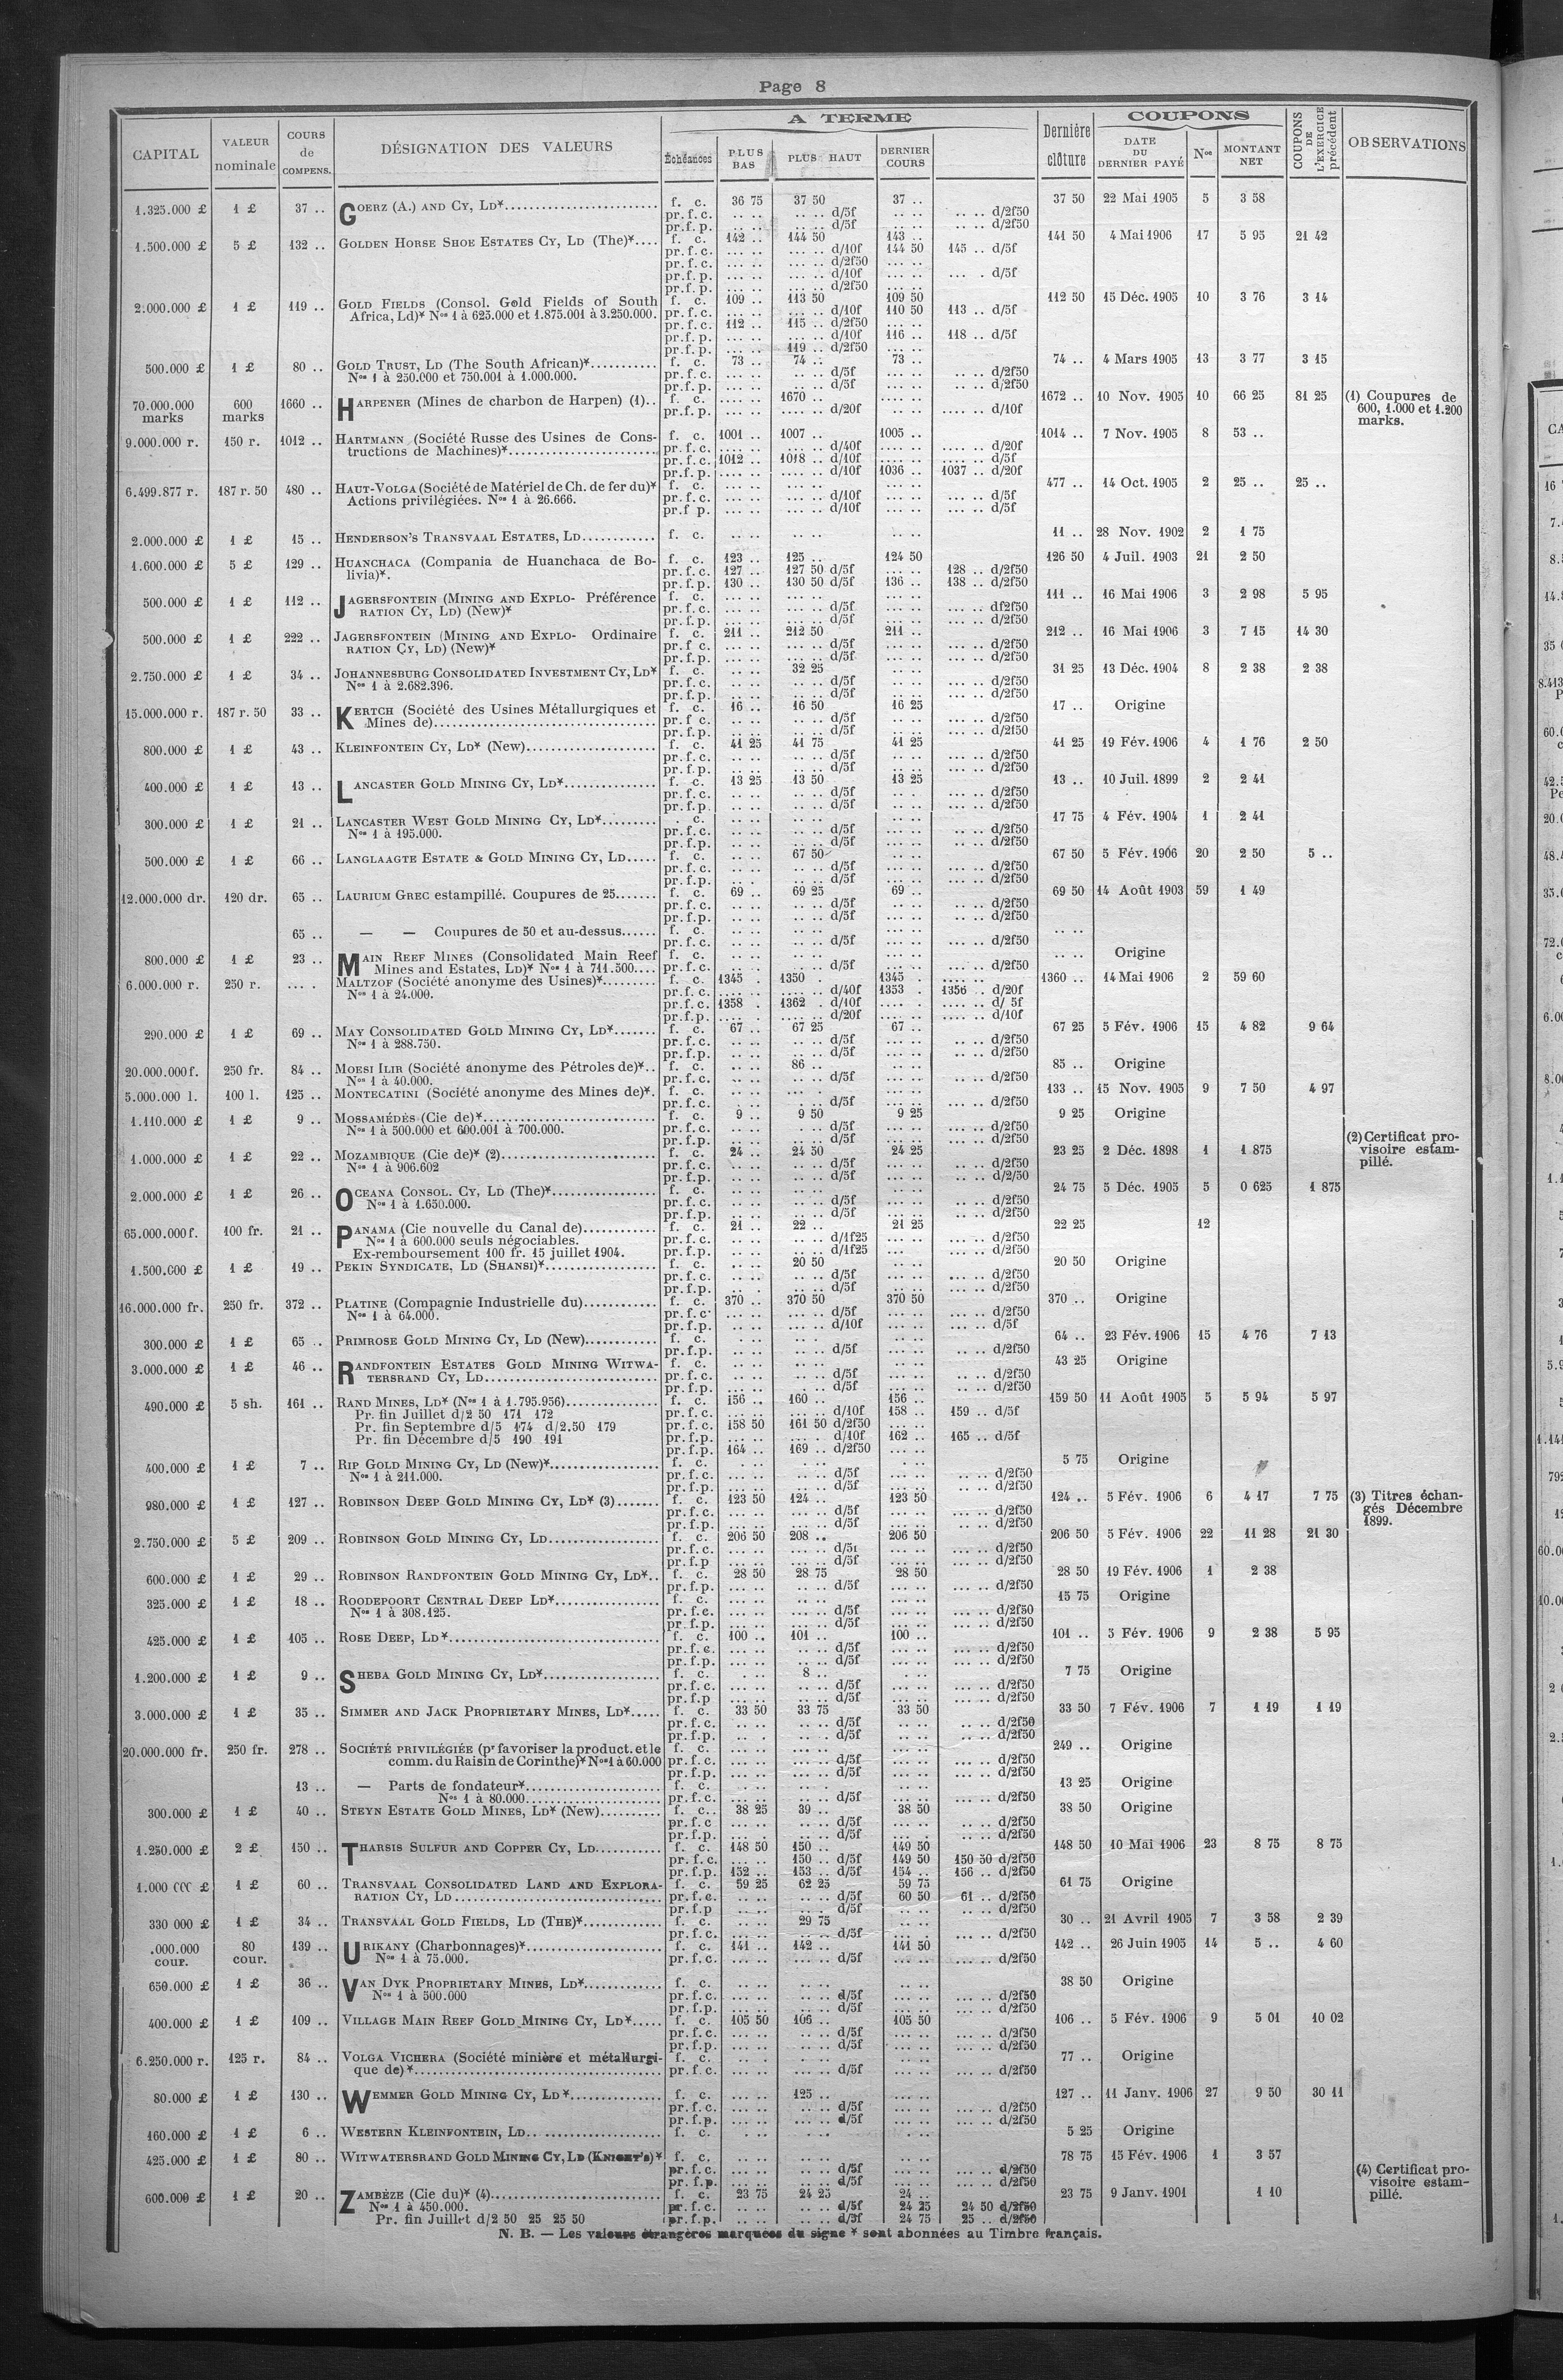 Page 8
CAPITAL | VALEUR nominale | COURS de COMPENS. | DÉSIGNATION DES VALEURS | A TERME | Dernière clôture | COUPONS | COUPONS DE L'EXERCICE précédent | OBSERVATIONS
Échéances | PLUS BAS | PLUS HAUT | DERNIER COURS | DATE DU DERNIER PAYÉ | Nos | MONTANT NET
1.325.000 £ | 1 £ | 37 .. | GOERZ (A.) AND CY, LD* | f. c. | 36 75 | 37 50 | 37 .. | 37 50 | 22 Mai 1905 | 5 | 3 58
pr. f. c. | .. .. | .. .. d/5f | .. .. | .. .. d/2f50
pr. f. p. | .. .. | .. .. d/5f | .. .. | .. .. d/2f50
1.500.000 £ | 5 £ | 132 .. | GOLDEN HORSE SHOE ESTATES CY, LD (The)* | f. c. | 142 .. | 144 50 | 143 .. | 141 50 | 4 Mai 1906 | 17 | 5 95 | 21 42
pr. f. c. | ... .. | ... .. d/10f | 144 50 | 145 .. d/5f
pr. f. c. | ... .. | ... .. d/2f50 | ... ..
pr. f. p. | ... .. | ... .. d/10f | ... .. | ... . d/5f
pr. f. p. | ... .. | ... .. d/2f50 | ... ..
2.000.000 £ | 1 £ | 119 .. | GOLD FIELDS (Consol. Gold Fields of South | f. c. | 109 .. | 113 50 | 109 50 | 112 50 | 15 Déc. 1905 | 10 | 3 76 | 3 14
Africa, Ld)* Nos 1 à 625.000 et 1.875.001 à 3.250.000. | pr. f. c. | ... .. | ... .. d/10f | 110 50 | 113 .. d/5f
pr. f. c. | 112 .. | 115 .. d/2f50 | ... ..
pr. f. p. | ... .. | ... .. d/10f | 116 .. | 118 .. d/5f
pr. f. p. | ... .. | 119 .. d/2f50 | ... ..
500.000 £ | 1 £ | 80 .. | GOLD TRUST, LD (The South African)* | f. c. | 73 .. | 74 .. | 73 .. | 74 .. | 4 Mars 1905 | 13 | 3 77 | 3 15
Nos 1 à 250.000 et 750.001 à 1.000.000. | pr. f. c. | .. .. | .. .. d/5f | .. .. | .. .. d/2f50
pr. f. p. | .. .. | .. .. d/5f | .. .. | .. .. d/2f50
70.000.000 marks | 600 marks | 1660 .. | HARPENER (Mines de charbon de Harpen) (1) | f. c. | .... .. | 1670 .. | .... .. | 1672 .. | 10 Nov. 1905 | 10 | 66 25 | 81 25 | (1) Coupures de 600, 1.000 et 1.200 marks.
pr. f. p. | .... .. | .... .. d/20f | .... .. | .... .. d/10f
9.000.000 r. | 150 r. | 1012 .. | HARTMANN (Société Russe des Usines de Cons- | f. c. | 1001 .. | 1007 .. | 1005 .. | 1014 .. | 7 Nov. 1905 | 8 | 53 ..
tructions de Machines)* | pr. f. c. | .... .. | .... .. d/40f | .... .. | .... .. d/20f
pr. f. c. | 1012 .. | 1018 .. d/10f | .... .. | .... .. d/5f
pr. f. p. | .... .. | .... .. d/10f | 1036 .. | 1037 .. d/20f
6.499.877 r. | 187 r. 50 | 480 .. | HAUT-VOLGA (Société de Matériel de Ch. de fer du)* | f. c. | ... .. | ... .. | ... .. | 477 .. | 14 Oct. 1905 | 2 | 25 .. | 25 ..
Actions privilégiées. Nos 1 à 26.666. | pr. f. c. | ... .. | ... .. d/10f | ... .. | ... .. d/5f
pr. f p. | ... .. | ... .. d/10f | ... .. | ... .. d/5f
2.000.000 £ | 1 £ | 15 .. | HENDERSON'S TRANSVAAL ESTATES, LD | f. c. | .. .. | .. .. | .. .. | 11 .. | 28 Nov. 1902 | 2 | 1 75
1.600.000 £ | 5 £ | 129 .. | HUANCHACA (Compania de Huanchaca de Bo- | f. c. | 123 .. | 125 .. | 124 50 | 126 50 | 4 Juil. 1903 | 21 | 2 50
livia)*. | pr. f. c. | 127 .. | 127 50 d/5f | ... .. | 128 .. d/2f50
pr. f. p. | 130 .. | 130 50 d/5f | 136 .. | 138 .. d/2f50
500.000 £ | 1 £ | 112 .. | JAGERSFONTEIN (MINING AND EXPLO- Préférence | f. c. | ... .. | ... .. | ... .. | 111 .. | 16 Mai 1906 | 3 | 2 98 | 5 95
RATION CY, LD) (New)* | pr. f. c. | ... .. | ... .. d/5f | ... .. | ... .. df2f50
pr. f. p. | ... .. | ... .. d/5f | ... .. | ... .. d/2f50
500.000 £ | 1 £ | 222 .. | JAGERSFONTEIN (MINING AND EXPLO- Ordinaire | f. c. | 211 .. | 212 50 | 211 .. | 212 .. | 16 Mai 1906 | 3 | 7 15 | 14 30
RATION CY, LD) (New)* | pr. f c. | ... .. | ... .. d/5f | ... .. | ... .. d/2f50
pr. f. p. | ... .. | ... .. d/5f | ... .. | ... .. d/2f50
2.750.000 £ | 1 £ | 34 .. | JOHANNESBURG CONSOLIDATED INVESTMENT CY, LD* | f. c. | .. .. | 32 25 | .. .. | 31 25 | 13 Déc. 1904 | 8 | 2 38 | 2 38
Nos 1 à 2.682.396. | pr. f. c. | .. .. | .. .. d/5f | .. .. | ... .. d/2f50
pr. f. p. | .. .. | .. .. d/5f | .. .. | ... .. d/2f50
15.000.000 r. | 187 r. 50 | 33 .. | KERTCH (Société des Usines Métallurgiques et | f. c. | 16 .. | 16 50 | 16 25 | 17 .. | Origine
Mines de) | pr. f c. | .. .. | .. .. d/5f | .. .. | ... .. d/2f50
pr. f. p. | .. .. | .. .. d/5f | .. .. | ... .. d/2f50
800.000 £ | 1 £ | 43 .. | KLEINFONTEIN CY, LD* (New) | f. c. | 41 25 | 41 75 | 41 25 | 41 25 | 19 Fév. 1906 | 4 | 1 76 | 2 50
pr. f. c. | .. .. | .. .. d/5f | .. .. | ... .. d/2f50
pr. f. p. | .. .. | .. .. d/5f | .. .. | ... .. d/2f50
400.000 £ | 1 £ | 13 .. | LANCASTER GOLD MINING CY, LD* | f. c. | 13 25 | 13 50 | 13 25 | 13 .. | 10 Juil. 1899 | 2 | 2 41
pr. f. c. | .. .. | .. .. d/5f | .. .. | ... .. d/2f50
pr. f. p. | .. .. | .. .. d/5f | .. .. | ... .. d/2f50
300.000 £ | 1 £ | 21 .. | LANCASTER WEST GOLD MINING CY, LD* | . c. | .. .. | .. .. | ... .. | 17 75 | 4 Fév. 1904 | 1 | 2 41
Nos 1 à 195.000. | pr. f. c. | .. .. | .. .. d/5f | ... .. | .. .. d/2f50
pr. f. p. | .. .. | .. .. d/5f | ... .. | .. .. d/2f50
500.000 £ | 1 £ | 66 .. | LANGLAAGTE ESTATE & GOLD MINING CY, LD | f. c. | .. .. | 67 50 | .. .. | 67 50 | 5 Fév. 1906 | 20 | 2 50 | 5 ..
pr. f. c. | .. .. | .. .. d/5f | ... .. | .. .. d/2f50
pr. f. p. | .. . | .. .. d/5f | ... .. | .. .. d/2f50
12.000.000 dr. | 120 dr. | 65 .. | LAURIUM GREC estampillé. Coupures de 25 | f. c. | 69 .. | 69 25 | 69 .. | 69 50 | 14 Août 1903 | 59 | 1 49
pr. f. c. | .. .. | .. .. d/5f | ... .. | .. .. d/2f50
pr. f. p. | .. .. | .. .. d/5f | ... .. | .. .. d/2f50
65 .. | — — Coupures de 50 et au-dessus | f. c. | .. .. | .. .. | ... .. | .. ..
pr. f. c. | .. .. | .. .. d/5f | ... .. | ... .. d/2f50
800.000 £ | 1 £ | 23 .. | MAIN REEF MINES (Consolidated Main Reef | f. c. | .. .. | .. .. | ... .. | .. .. | Origine
Mines and Estates, LD)* Nos 1 à 711.500 | pr. f. c. | .. . | .. .. d/5f | ... .. | ... .. d/2f50
6.000.000 r. | 250 r. | ... . | MALTZOF (Société anonyme des Usines)* | f. c. | 1345 . | 1350 . | 1345 . | 1360 .. | 14 Mai 1906 | 2 | 59 60
Nos 1 à 24.000. | pr. f. c. | .... .. | .... .. d/40f | 1353 . | 1356 .. d/20f
pr. f. c. | 1358 . | 1362 . d/10f | .... . | .... .. d/ 5f
pr. f. p. | .... . | .... . d/20f | .... . | .... .. d/10f
290.000 £ | 1 £ | 69 .. | MAY CONSOLIDATED GOLD MINING CY, LD* | f. c. | 67 .. | 67 25 | 67 .. | 67 25 | 5 Fév. 1906 | 15 | 4 82 | 9 64
Nos 1 à 288.750. | pr. f. c. | .. .. | .. .. d/5f | .. .. | .. .. d/2f50
pr. f. p. | .. .. | .. .. d/5f | .. .. | .. .. d/2f50
20.000.000 f. | 250 fr. | 84 .. | MOESI ILIR (Société anonyme des Pétroles de)* | f. c. | .. .. | 86 .. | .. .. | 85 .. | Origine
Nos 1 à 40.000. | pr. f. c. | .. .. | .. .. d/5f | .. .. | .. .. d/2f50
5.000.000 l. | 100 l. | 125 .. | MONTECATINI (Société anonyme des Mines de)*. | f. c. | .. .. | ... . | ... .. | 133 .. | 15 Nov. 1905 | 9 | 7 50 | 4 97
pr. f. c. | . .. | .. .. d/5f | ... .. | ... .. d/2f50
1.110.000 £ | 1 £ | 9 .. | MOSSAMÉDÈS (Cie de)* | f. c. | 9 .. | 9 50 | 9 25 | 9 25 | Origine
Nos 1 à 500.000 et 600.001 à 700.000. | pr. f. c. | . .. | .. .. d/5f | ... .. | ... .. d/2f50
pr. f. p. | .. .. | .. .. d/5f | ... .. | ... .. d/2f50
1.000.000 £ | 1 £ | 22 .. | MOZAMBIQUE (Cie de)* (2) | f. c. | 24 .. | 24 50 | 24 25 | 23 25 | 2 Déc. 1898 | 1 | 1 875 | (2) Certificat provisoire estampillé.
Nos 1 à 906.602 | pr. f. c. | .. .. | .. .. d/5f | ... .. | .. .. d/2f50
pr. f. p. | .. .. | .. .. d/5f | ... .. | .. .. d/2/50
2.000.000 £ | 1 £ | 26 .. | OCEANA CONSOL. CY, LD (The)* | f. c. | .. .. | .. .. | ... .. | 24 75 | 5 Déc. 1905 | 5 | 0 625 | 1 875
Nos 1 à 1.650.000. | pr. f. c. | .. .. | .. .. d/5f | ... .. | .. .. d/2f50
pr. f. p. | .. .. | .. .. d/5f | ... .. | .. .. d/2f50
65.000.000 f. | 100 fr. | 21 .. | PANAMA (Cie nouvelle du Canal de) | f. c. | 21 .. | 22 .. | 21 25 | 22 25 | 12
Nos 1 à 600.000 seuls négociables. | pr. f. c. | .. .. | .. .. d/1f25 | ... .. | .. .. d/2f50
Ex-remboursement 100 fr. 15 juillet 1904. | pr. f. p. | .. .. | .. .. d/1f25 | ... | .. .. d/2f50
1.500.000 £ | 1 £ | 19 .. | PEKIN SYNDICATE, LD (SHANSI)* | f. c. | .. . | 20 50 | .. .. | 20 50 | Origine
pr. f. c. | .. .. | .. .. d/5f | ... .. | ... .. d/2f50
pr. f. p. | .. . | .. .. d/5f | ... .. | ... .. d/2f50
16.000.000 fr. | 250 fr. | 372 .. | PLATINE (Compagnie Industrielle du) | f. c. | 370 .. | 370 50 | 370 50 | 370 .. | Origine
Nos 1 à 64.000. | pr. f. c. | ... .. | ... .. d/5f | ... .. | ... .. d/2f50
pr. f. p. | ... .. | ... .. d/10f | ... .. | ... .. d/5f
300.000 £ | 1 £ | 65 .. | PRIMROSE GOLD MINING CY, LD (New) | f. c. | .. .. | .. .. | .. .. | 64 .. | 23 Fév. 1906 | 15 | 4 76 | 7 13
pr. f. p. | .. .. | .. .. d/5f | ... .. | .. .. d/2f50
3.000.000 £ | 1 £ | 46 .. | RANDFONTEIN ESTATES GOLD MINING WITWA- | f. c. | .. .. | .. .. | ... .. | 43 25 | Origine
TERSBRAND CY, LD | pr. f. c. | .. .. | .. .. d/5f | ... .. | .. .. d/2f50
pr. f. p. | ... .. | . .. d/5f | ... .. | .. .. d/2f50
490.000 £ | 5 sh. | 161 .. | RAND MINES, LD* (Nos 1 à 1.795.956) | f. c. | 156 .. | 160 .. | 156 .. | 159 50 | 11 Août 1905 | 5 | 5 94 | 5 97
Pr. fin Juillet d/2 50 171 172 | pr. f. c. | ... .. | ... .. d/10f | 158 .. | 159 .. d/5f
Pr. fin Septembre d/5 174 d/2.50 179 | pr. f. c. | 158 50 | 161 50 d/2f50 | ... ..
Pr. fin Décembre d/5 190 191 | pr. f. p. | ... .. | ... . d/10f | 162 .. | 165 .. d/5f
pr. f. p. | 164 .. | 169 .. d/2f50 | ... ..
400.000 £ | 1 £ | 7 .. | RIP GOLD MINING CY, LD (New)* | f. c. | . .. | . .. | . .. | 5 75 | Origine
Nos 1 à 211.000. | pr. f. c. | ... .. | .. .. d/5f | ... .. | .. .. d/2f50
pr. f. p. | ... .. | .. .. d/5f | ... .. | .. .. d/2f50
980.000 £ | 1 £ | 127 .. | ROBINSON DEEP GOLD MINING CY, LD* (3) | f. c. | 123 50 | 124 .. | 123 50 | 124 .. | 5 Fév. 1906 | 6 | 4 17 | 7 75 | (3) Titres échangés Décembre 1899.
pr. f. c. | ... .. | ... .. d/5f | ... .. | ... .. d/2f50
pr. f. p. | ... .. | ... .. d/5f | ... .. | .. .. d/2f50
2.750.000 £ | 5 £ | 209 .. | ROBINSON GOLD MINING CY, LD | f. c. | 206 50 | 208 .. | 206 50 | 206 50 | 5 Fév. 1906 | 22 | 11 28 | 21 30
pr. f. c. | ... .. | ... .. d/5f | ... .. | ... .. d/2f50
pr. f. p | ... .. | ... .. d/5f | ... .. | ... .. d/2f50
600.000 £ | 1 £ | 29 .. | ROBINSON RANDFONTEIN GOLD MINING CY, LD* | f. c. | 28 50 | 28 75 | 28 50 | 28 50 | 19 Fév. 1906 | 1 | 2 38
pr. f. p. | ... .. | .. .. d/5f | ... .. | ... .. d/2f50
325.000 £ | 1 £ | 18 .. | ROODEPOORT CENTRAL DEEP LD* | f. c. | ... .. | .. .. | ... .. | 15 75 | Origine
Nos 1 à 308.125. | pr. f. c. | ... .. | ... .. d/5f | ... .. | ... .. d/2f50
pr. f. p. | ... .. | ... .. d/5f | ... .. | ... .. d/2f50
425.000 £ | 1 £ | 105 .. | ROSE DEEP, LD* | f. c. | 100 .. | 101 .. | 100 .. | 101 .. | 5 Fév. 1906 | 9 | 2 38 | 5 95
pr. f. c. | ... .. | .. .. d/5f | ... .. | ... .. d/2f50
pr. f. p. | ... .. | .. .. d/5f | ... .. | ... .. d/2f50
1.200.000 £ | 1 £ | 9 .. | SHEBA GOLD MINING CY, LD* | f. c. | . .. | 8 .. | . .. | 7 75 | Origine
pr. f. c. | ... .. | .. .. d/5f | ... .. | ... .. d/2f50
pr. f. p | ... .. | .. .. d/5f | ... .. | ... .. d/2f50
3.000.000 £ | 1 £ | 35 .. | SIMMER AND JACK PROPRIETARY MINES, LD* | f. c. | 33 50 | 33 75 | 33 50 | 33 50 | 7 Fév. 1906 | 7 | 1 19 | 1 19
pr. f. c. | .. .. | .. .. d/5f | .. .. | .. .. d/2f50
pr. f. p. | .. . | .. .. d/5f | .. .. | .. .. d/2f50
20.000.000 fr. | 250 fr. | 278 .. | SOCIÉTÉ PRIVILÉGIÉE (pr favoriser la product. et le | f. c. | ... .. | ... .. | ... .. | 249 .. | Origine
comm. du Raisin de Corinthe)* Nos 1 à 60.000 | pr. f. c. | ... .. | ... .. d/5f | ... .. | ... .. d/2f50
pr. f. p. | ... .. | ... .. d/5f | ... .. | ... .. d/2f50
13 .. | — Parts de fondateur* | f. c. | .. .. | .. .. | .. .. | 13 25 | Origine
Nos 1 à 80.000 | pr. f. c. | ... .. | .. .. d/5f | ... .. | ... .. d/2f50
300.000 £ | 1 £ | 40 .. | STEYN ESTATE GOLD MINES, LD* (New) | f. c. | 38 25 | 39 .. | 38 50 | 38 50 | Origine
pr. f. c | ... .. | ... .. d/5f | ... .. | .. .. d/2f50
pr. f. p. | ... . | ... .. d/5f | ... .. | .. .. d/2f50
1.250.000 £ | 2 £ | 150 .. | THARSIS SULFUR AND COPPER CY, LD | f. c. | 148 50 | 150 .. | 149 50 | 148 50 | 10 Mai 1906 | 23 | 8 75 | 8 75
pr. f. c. | ... .. | 150 .. d/5f | 149 50 | 150 50 d/2f50
pr. f. p. | 152 .. | 153 .. d/5f | 154 .. | 156 .. d/2f50
1.000 000 £ | 1 £ | 60 .. | TRANSVAAL CONSOLIDATED LAND AND EXPLORA- | f. c. | 59 25 | 62 25 | 59 75 | 61 75 | Origine
RATION CY, LD | pr. f. c. | .. .. | .. .. d/5f | 60 50 | 61 .. d/2f50
pr. f. p | .. .. | .. .. d/5f | .. .. | .. .. d/2f50
330 000 £ | 1 £ | 34 .. | TRANSVAAL GOLD FIELDS, LD (THE)* | f. c. | .. .. | 29 75 | .. .. | 30 .. | 21 Avril 1905 | 7 | 3 58 | 2 39
pr. f. c. | ... .. | ... .. d/5f | ... .. | ... .. d/2f50
.000.000 cour. | 80 cour. | 139 .. | URIKANY (Charbonnages)* | f. c. | 141 .. | 142 .. | 141 50 | 142 .. | 26 Juin 1905 | 14 | 5 .. | 4 60
Nos 1 à 75.000. | pr. f. c. | ... .. | ... .. d/5f | ... .. | ... .. d/2f50
650.000 £ | 1 £ | 36 .. | VAN DYK PROPRIETARY MINES, LD* | f. c. | .. .. | .. .. | .. .. | 38 50 | Origine
Nos 1 à 500.000 | pr. f. c. | ... .. | .. .. d/5f | ... .. | ... .. d/2f50
pr. f. p. | ... .. | .. .. d/5f | ... .. | ... .. d/2f50
400.000 £ | 1 £ | 109 .. | VILLAGE MAIN REEF GOLD MINING CY, LD* | f. c. | 105 50 | 106 .. | 105 50 | 106 .. | 5 Fév. 1906 | 9 | 5 01 | 10 02
pr. f. c. | ... .. | .. .. d/5f | ... .. | ... .. d/2f50
pr. f. p. | ... .. | .. .. d/5f | ... .. | ... .. d/2f50
6.250.000 r. | 125 r. | 84 .. | VOLGA VICHERA (Société minière et métallurgi- | f. c. | .. . | .. .. | .. .. | 77 .. | Origine
que de)* | pr. f. c. | ... .. | ... .. d/5f | ... .. | .. .. d/2f50
80.000 £ | 1 £ | 130 .. | WEMMER GOLD MINING CY, LD* | f. c. | ... .. | 125 .. | ... .. | 127 .. | 11 Janv. 1906 | 27 | 9 50 | 30 11
pr. f. c. | ... .. | ... .. d/5f | ... .. | ... .. d/2f50
pr. f. p. | ... .. | ... .. d/5f | ... .. | ... .. d/2f50
160.000 £ | 1 £ | 6 .. | WESTERN KLEINFONTEIN, LD | f. c. | . .. | . .. | . .. | 5 25 | Origine
425.000 £ | 1 £ | 80 .. | WITWATERSRAND GOLD MINING CY, LD (KNIGHT'S)* | f. c. | .. .. | .. .. | .. .. | 78 75 | 15 Fév. 1906 | 1 | 3 57
pr. f. c. | ... .. | ... .. d/5f | ... .. | ... .. d/2f50
pr. f. p. | ... .. | ... .. d/5f | ... .. | ... .. d/2f50
600.000 £ | 1 £ | 20 .. | ZAMBÈZE (Cie du)* (4) | f. c. | 23 75 | 24 25 | 24 .. | 23 75 | 9 Janv. 1901 | 1 10 | (4) Certificat provisoire estampillé.
Nos 1 à 450.000. | pr. f. c. | .. .. | .. .. d/5f | 24 25 | 24 50 d/2f50
Pr. fin Juillet d/2 50 25 25 50 | pr. f. p. | .. .. | .. .. d/5f | 24 75 | 25 .. d/2f50
N. B. — Les valeurs étrangères marquées du signe * sont abonnées au Timbre français.